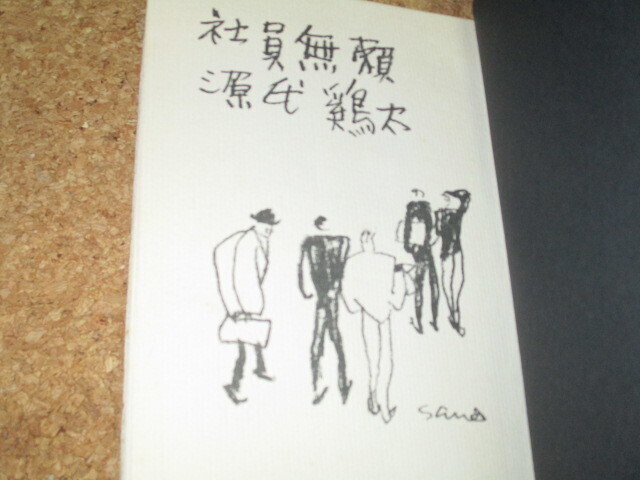 社員無頼
源氏鶏太